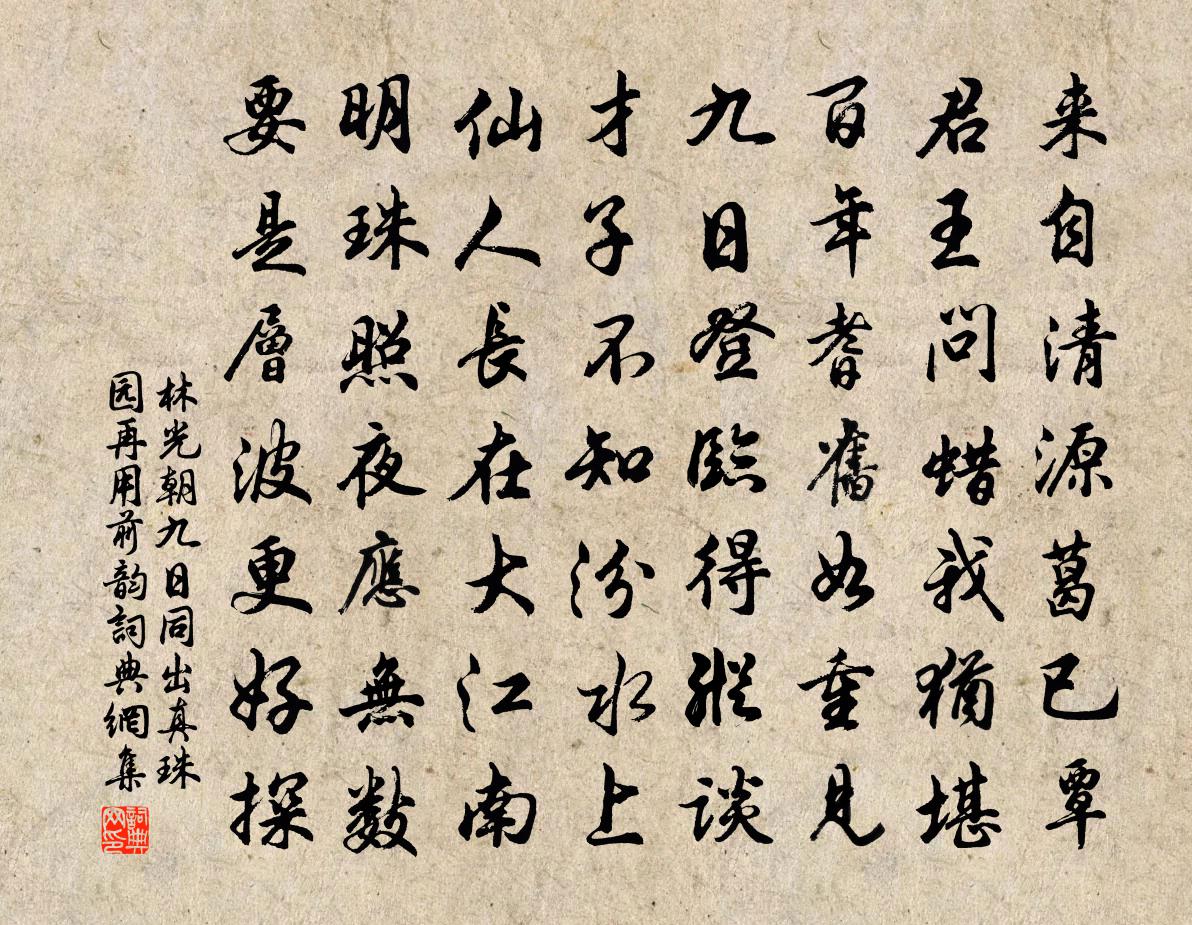 来自清源葛已覃
君王问蜡我犹堪
百年耆舊如重見
九日登臨得縱談
才子不知汾水上
仙人長在大江南
明珠照夜應無數
要是層波更好探
林光朝九日同出真珠
园再用前韵詞典網集
詞典网印